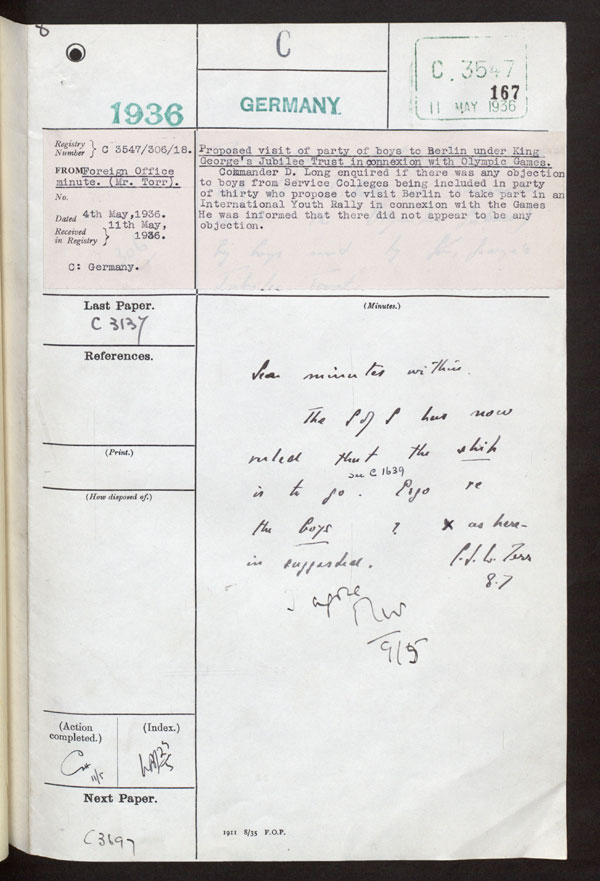 8
C
C. 3547
167
11 MAY 1936
1936
GERMANY
Registry
Number } C 3547/306/18.
FROM Foreign Office
minute. (Mr. Torr).
No.
Dated 4th May, 1936.
Received
in Registry } 11th May,
1936.
C: Germany.
Proposed visit of party of boys to Berlin under King
George's Jubilee Trust in connexion with Olympic Games.
Commander D. Long enquired if there was any objection
to boys from Service Colleges being included in party
of thirty who propose to visit Berlin to take part in an
International Youth Rally in connexion with the Games
He was informed that there did not appear to be any
objection.
Last Paper.
C 3137
References.
(Print.)
(How disposed of.)
(Action
completed.)
11/5
(Index.)
Next Paper.
C3697
(Minutes.)
See minutes within.
The S of S has now
ruled that the ship
see C 1639
is to go. Ergo re
the boys ? x as here-
in suggested.
Torr
8.5
I agree
9/5
1911 8/35 F.O.P.